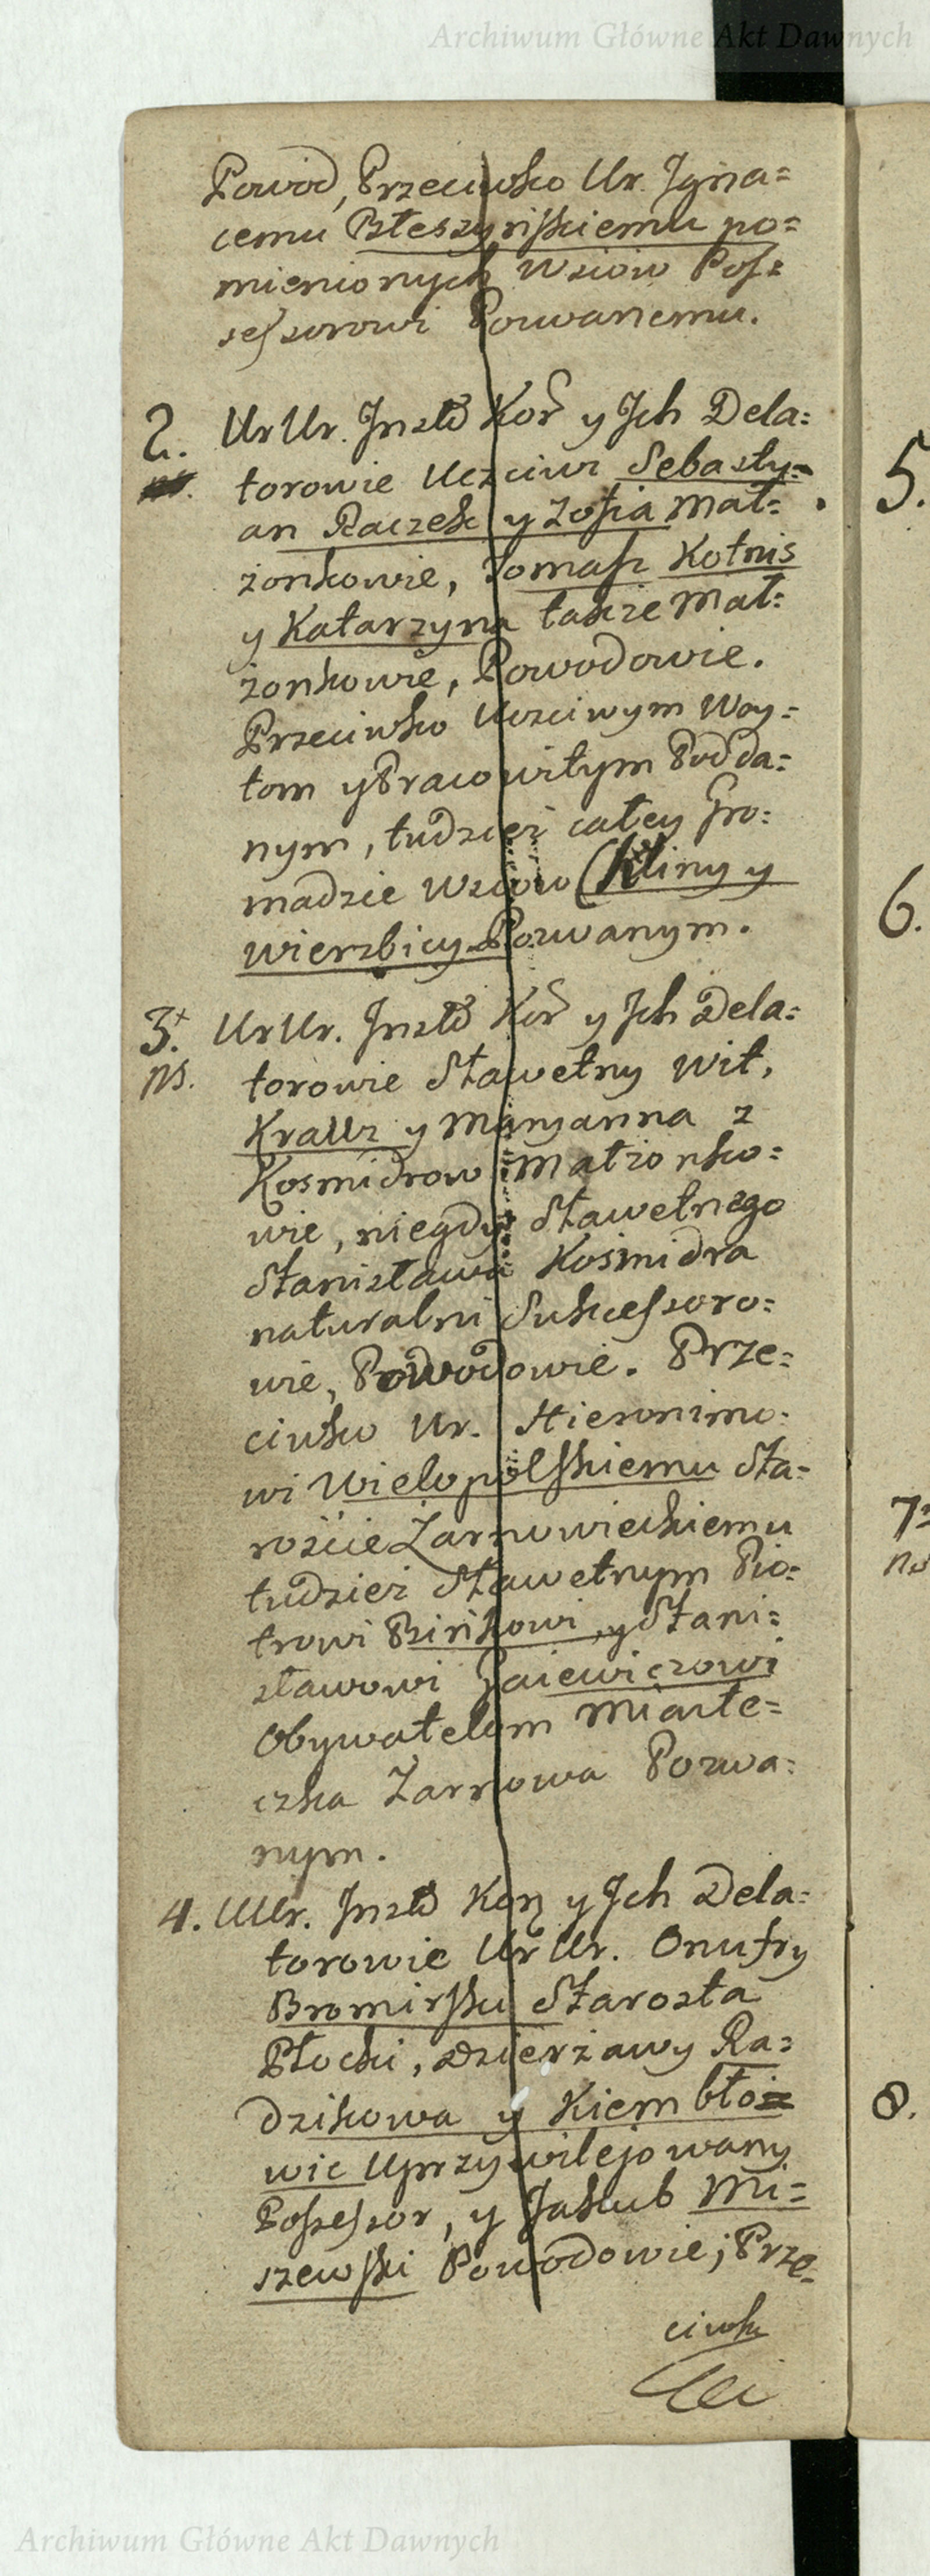 Archiwum Główne Akt Dawnych
Powod, Przeciwko Ur. Igna=
cemu Błeszyńskiemu po=
mienionych Wsiow Pos=
sessorowi Pozwanemu.
2. Ur Ur. Instō Koř y Jch Dela=
torowie Uczciwi Sebasty=
an Raczek y Zofia Mał=
żonkowie, Tomasz Kotnis
y Katarzyna także Mał=
żonkowie, Powodowie.
Przeciwko Uczciwym Woy=
tom y Pracowitym Podda=
nym, tudzież całey Gro=
madzie Wsiow (Kliny y
wierzbicy Pozwanym.
3. Ur Ur. Instō Koř y Jch Dela=
ns. torowie Sławetny Wit,
Krauz y Maryanna z
Kosmidrow Małżonko=
wie, niegdy Sławetnego
Stanisława Kośmidra
naturalni Sukcessoro=
wie, Powodowie. Prze=
ciwko Ur. Hieronimo=
wi Wielopolskiemu Sta=
roście Żarnowieckiemu
tudzież Sławetnym Pio=
trowi Bińkowi, y Stani=
sławowi Gaiewiczowi
Obywatelom Miaste=
czka Żarnowa Pozwa=
nym.
4. UUr. Instō Kor y Jch Dela=
torowie Ur Ur. Onufry
Bromirski Starosta
Płocki, Dzierżawy Ra=
dzikowa y Kiembło=
wic Uprzywilejowany
Possessor, y Jakub Mi=
szewski Powodowie; Prze=
ciwko
5.
6.
7.
ns
8.
Archiwum Główne Akt Dawnych